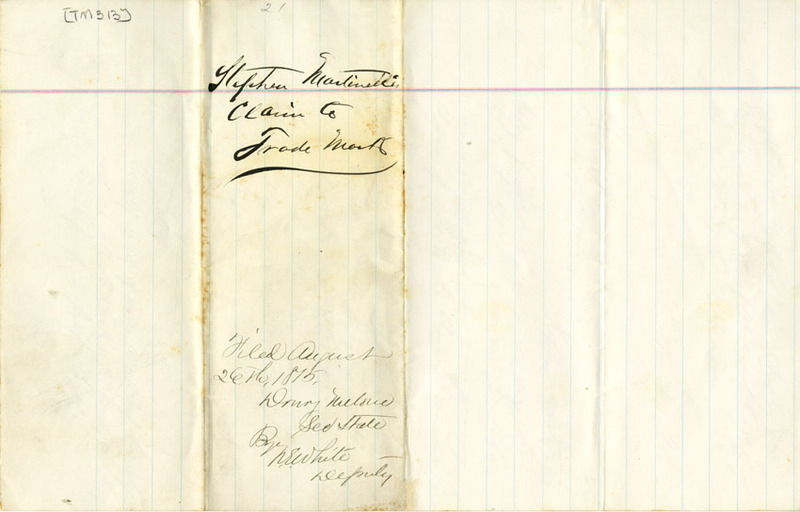 [TM313]
21
Stephen Martinelli's
Claim to
Trade Mark
Filed August
26th, 1875.
Drury Melone
Sec State
By
Deputy